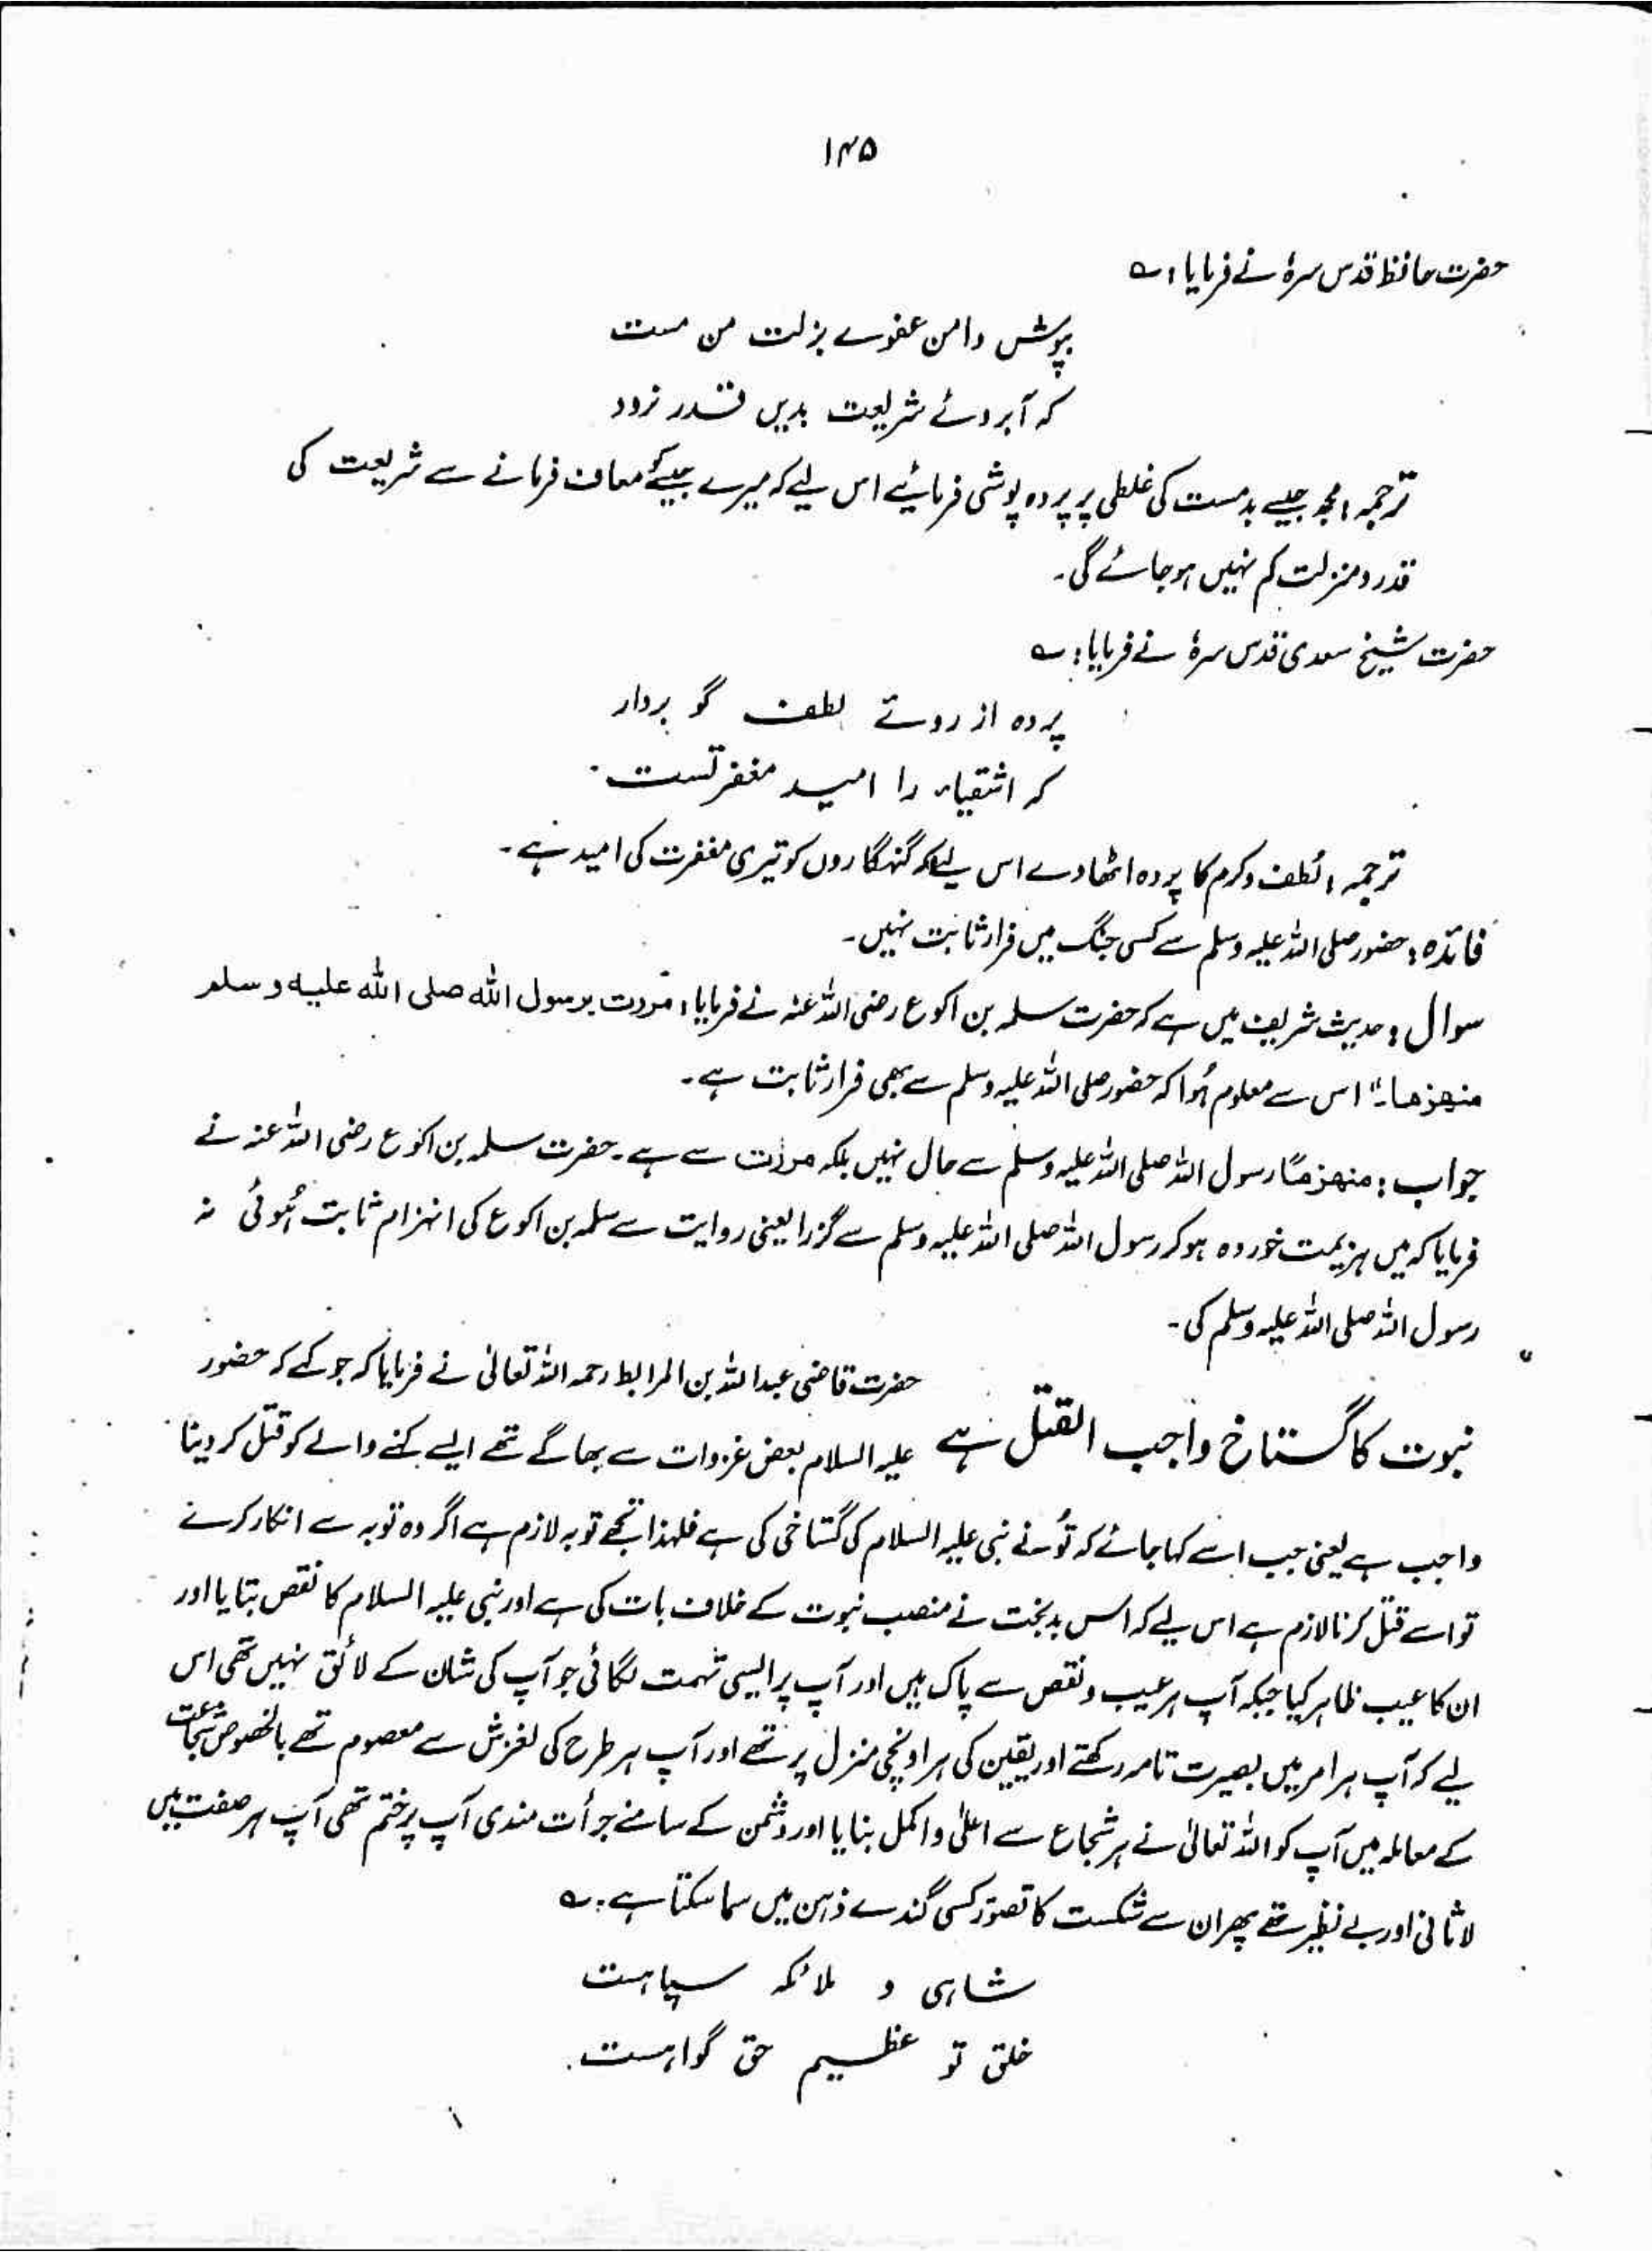 ۱۴۵
حضرت حافظ قدس سرہٗ نے فرمایا : ؎
بپوش دامن عفوے بزلت من مست
کہ آبروئے شریعت بدیں قدر نرود
ترجمہ : مجھ جیسے بدمست کی غلطی پر پردہ پوشی فرمائیے اس لیے کہ میرے جیسے کو معاف فرمانے سے شریعت کی
قدر و منزلت کم نہیں ہو جائے گی۔
حضرت شیخ سعدی قدس سرہٗ نے فرمایا : ؎
پردہ از روئے لطف گو بردار
کہ اشقیاء را امید مغفرتست
ترجمہ : لُطف و کرم کا پردہ اٹھا دے اس لیے کہ گنہگاروں کو تیری مغفرت کی امید ہے۔
فائدہ : حضور صلی اللہ علیہ وسلم سے کسی جنگ میں فرار ثابت نہیں۔
سوال : حدیث شریف میں ہے کہ حضرت سلمہ بن اکوع رضی اللہ عنہ نے فرمایا : مررت برسول اللہ صلی اللہ علیہ وسلم
منھزما۔" اس سے معلوم ہُوا کہ حضور صلی اللہ علیہ وسلم سے بھی فرار ثابت ہے۔
جواب : منھزمًا رسول اللہ صلی اللہ علیہ وسلم سے حال نہیں بلکہ مررت سے ہے۔ حضرت سلمہ بن اکوع رضی اللہ عنہ نے
فرمایا کہ میں ہزیمت خوردہ ہو کر رسول اللہ صلی اللہ علیہ وسلم سے گزرا یعنی روایت سے سلمہ بن اکوع کی انہزام ثابت ہُوئی نہ
رسول اللہ صلی اللہ علیہ وسلم کی۔
حضرت قاضی عبداللہ بن المرابط رحمہ اللہ تعالیٰ نے فرمایا کہ جو کہے کہ حضور
نبوت کا گستاخ واجب القتل ہے علیہ السلام بعض غزوات سے بھاگے تھے ایسے کہنے والے کو قتل کر دینا
واجب ہے یعنی جب اسے کہا جائے کہ تُو نے نبی علیہ السلام کی گستاخی کی ہے فلہذا تجھے توبہ لازم ہے اگر وہ توبہ سے انکار کرے
تو اسے قتل کرنا لازم ہے اس لیے کہ اس بدبخت نے منصب نبوت کے خلاف بات کی ہے اور نبی علیہ السلام کا نقص بتایا اور
ان کا عیب ظاہر کیا جبکہ آپ ہر عیب و نقص سے پاک ہیں اور آپ پر ایسی تہمت لگائی جو آپ کی شان کے لائق نہیں تھی اس
لیے کہ آپ ہر امر میں بصیرت تامہ رکھتے اور یقین کی ہر اونچی منزل پر تھے اور آپ ہر طرح کی لغزش سے معصوم تھے بالخصوص شجاعت
کے معاملہ میں آپ کو اللہ تعالیٰ نے ہر شجاع سے اعلیٰ و اکمل بنایا اور دشمن کے سامنے جرأت مندی آپ پر ختم تھی آپ ہر صفت میں
لاثانی اور بے نظیر تھے پھر ان سے شکست کا تصوّر کسی گندے ذہن میں سما سکتا ہے : ؎
شاہی و ملائکہ سپاہست
خلق تو عظیم حق گواہست